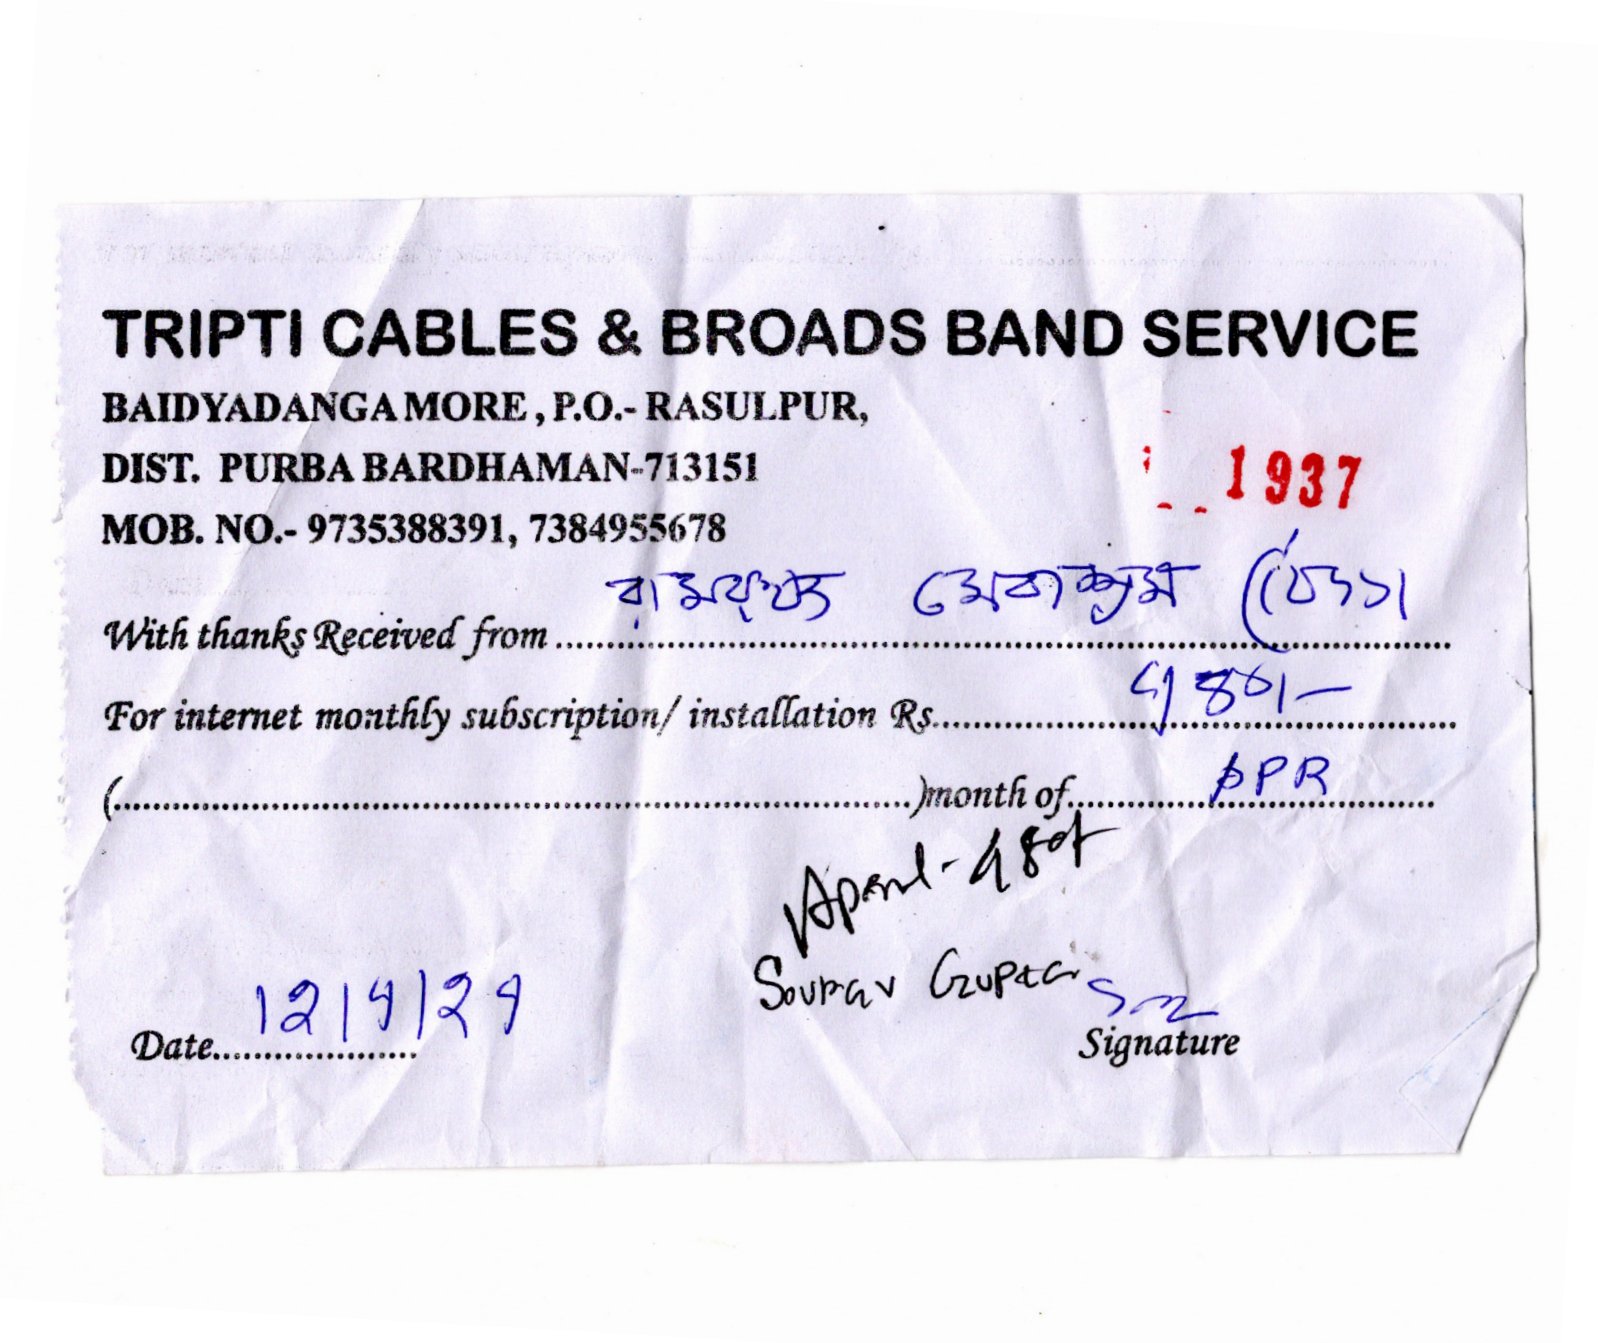 TRIPTI CABLES & BROADS BAND SERVICE
BAIDYADANGA MORE, P.O.- RASULPUR,
DIST. PURBA BARDHAMAN-713151
1937
MOB. NO.- 9735388391, 7384955678
With thanks Received from .......... রামকৃষ্ণ সেবাশ্রম
For internet monthly subscription/ installation Rs..........
(..........)month of.......... APR
April -
Sourav Gupta
Date.......... 12/4/24
Signature